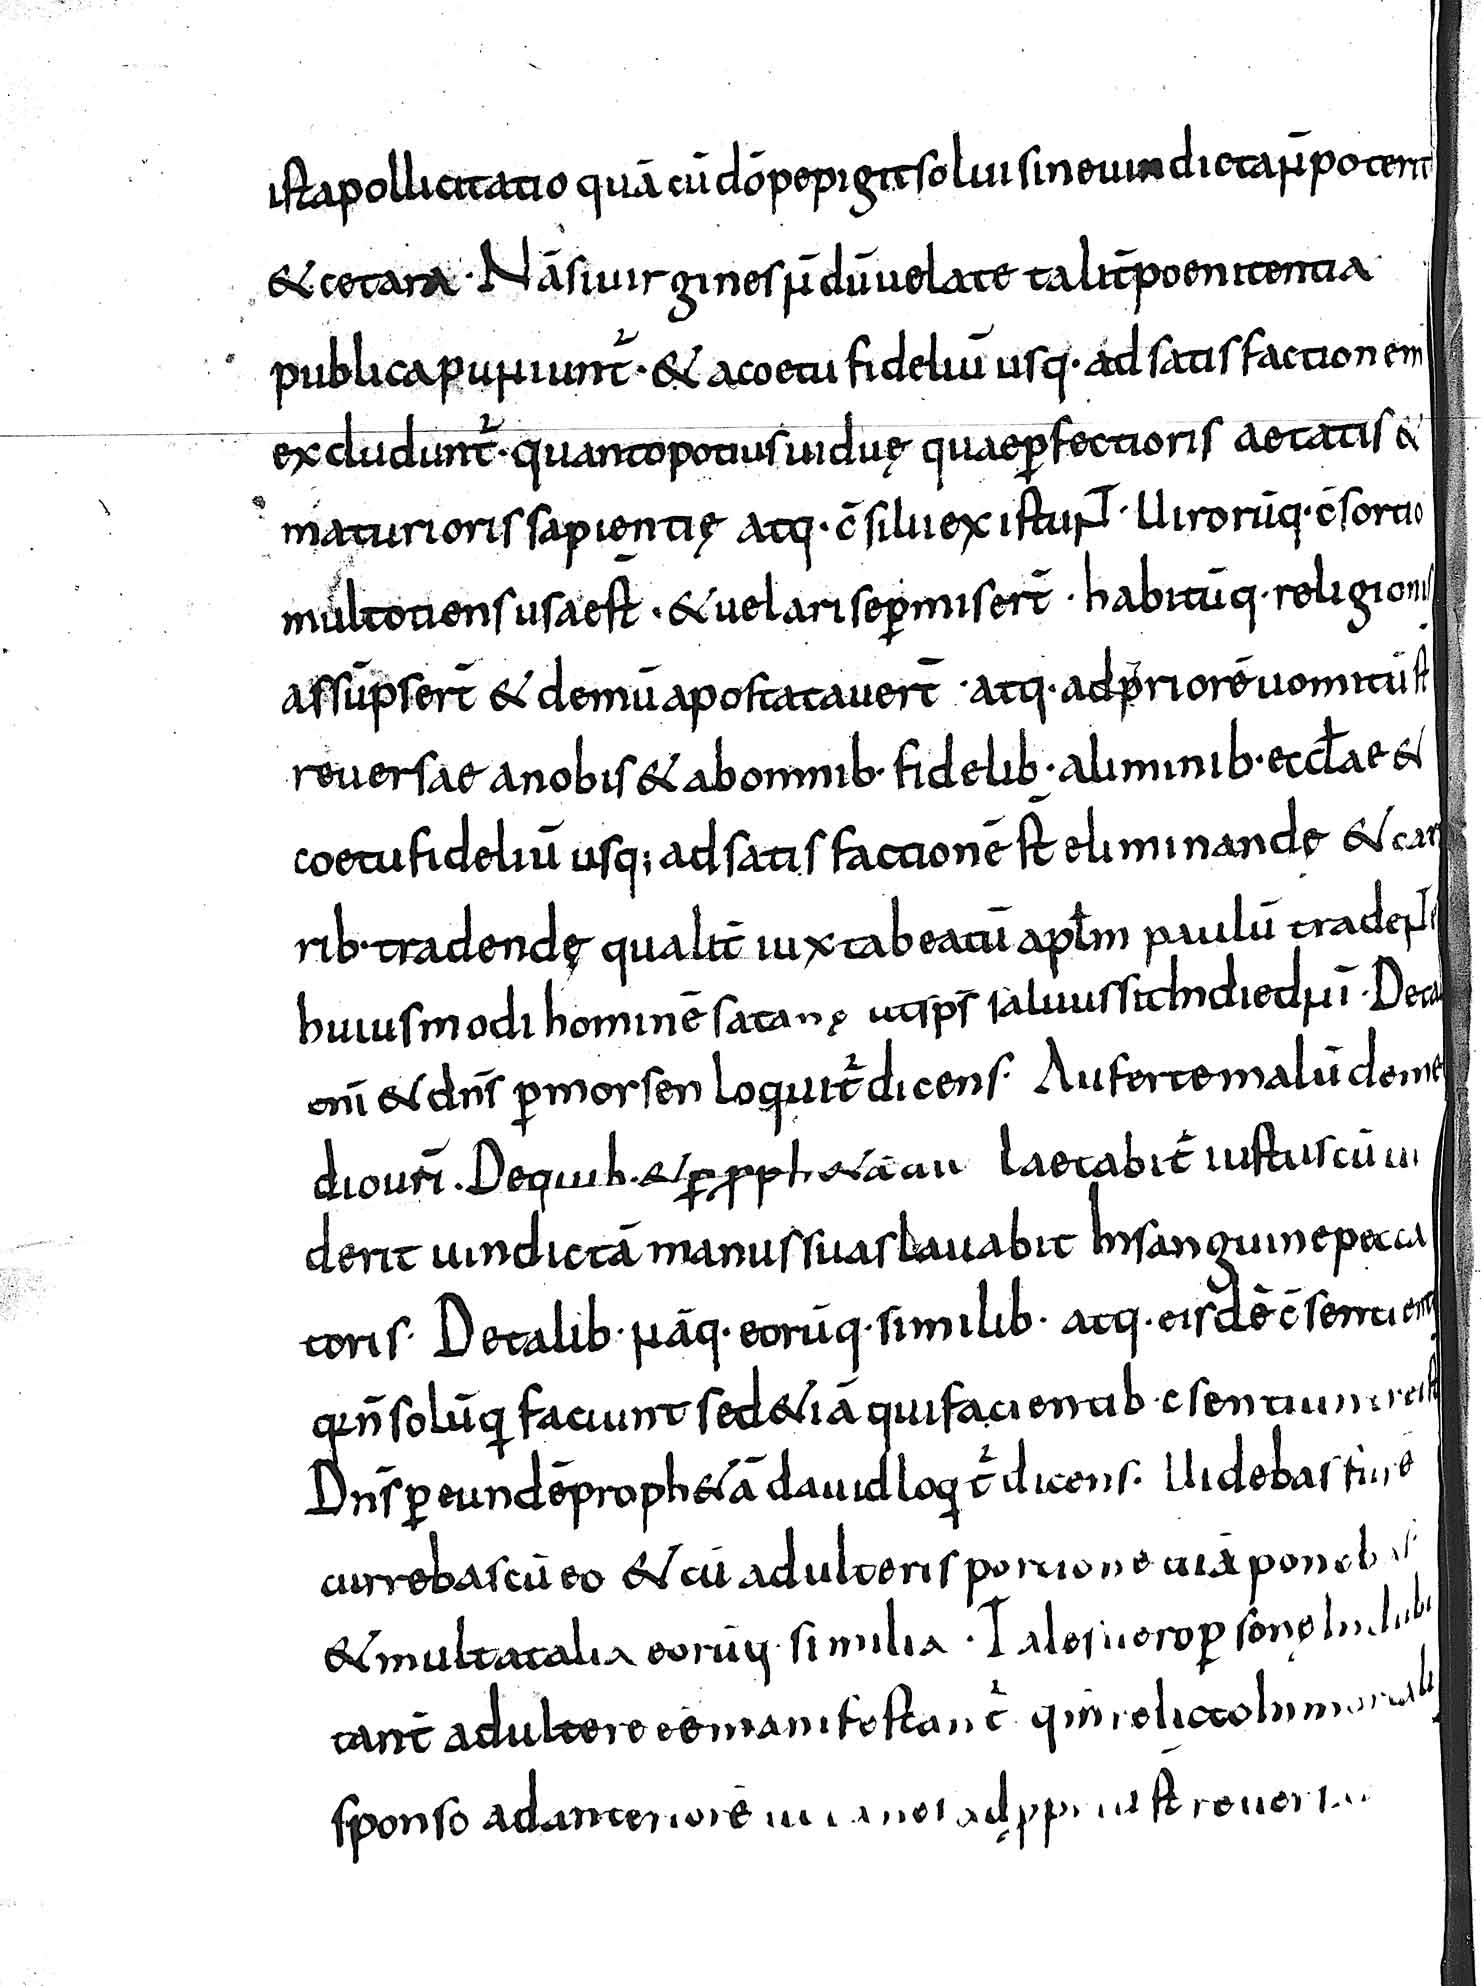 ista pollicitatio quā cū dō pepigit solui sine uindicta ñ poterit
& cetara · Nā si uirgines ñdū uelate talit̄ poenitentia
publica puniunt᷑ · & a coetu fideliū usq· ad satisfactionem
excludunt᷑ · quanto potius uiduę quae ꝑfectioris aetatis &
maturioris sapientię atq· c̄silii existunt · Uirorūq· c̄sortio
multotiens usae st̄ · & uelari se ꝑmisert̄ · habitūq· religionis
assūpsert̄ & demū apostatauert̄ · atq· ad priorē uomitū st̄
reuersae a nobis & ab omnib· fidelib· a liminib· eccłae &
coetu fideliū usq; ad satisfactionē st̄ eliminandę & car
rib· tradendę qualit̄ iuxta beatū apłm paulū tradente
huiusmodi hominē satanę ut sp̄s saluus sit In die dn̄i · De ta
& dn̄s ꝑ morsen loquit᷑ dicens · Auferte malū de me
dio ur̄i . De quib· & ꝑ pph&ā laetabit᷑ iustus cū ui
derit uindictā manus suas lauabit In sanguine pecca
toris · De talib· nāq· eorūq· similib· atq· eisdē c̄sentient
q n̄ solū q faciunt sed & iā qui facientib· c̄sentiunt rei st̄
Dn̄s ꝑ eundē proph&ā dauid loqt᷑ dicens · Uidebas furē
currebas cū eo & cū adulteris portione tuā ponebas
& multa talia eorūq· similia · Tales uero ꝑsonę Indubi
tant̄ adultere eē manifestant᷑ q In relicto Inmortali
sponso ad anteriorē st̄ reuersae